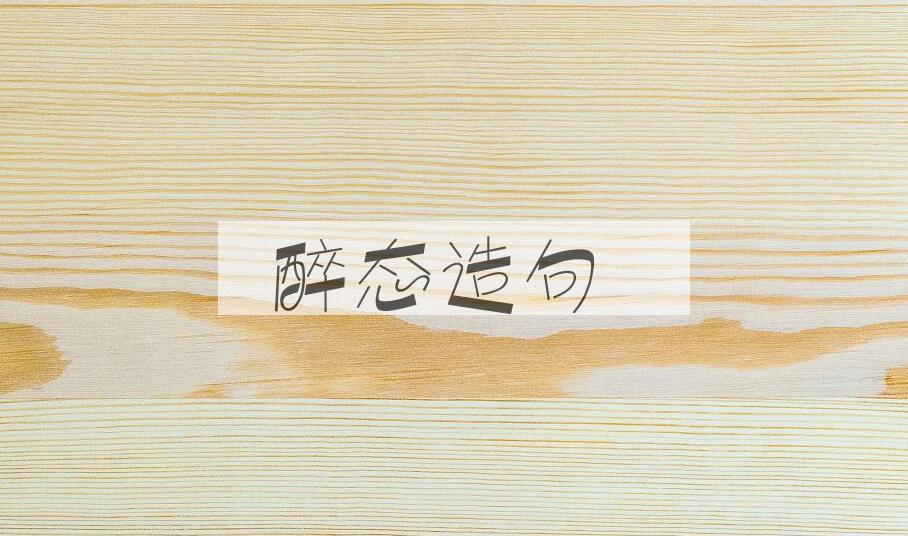 醉态造句